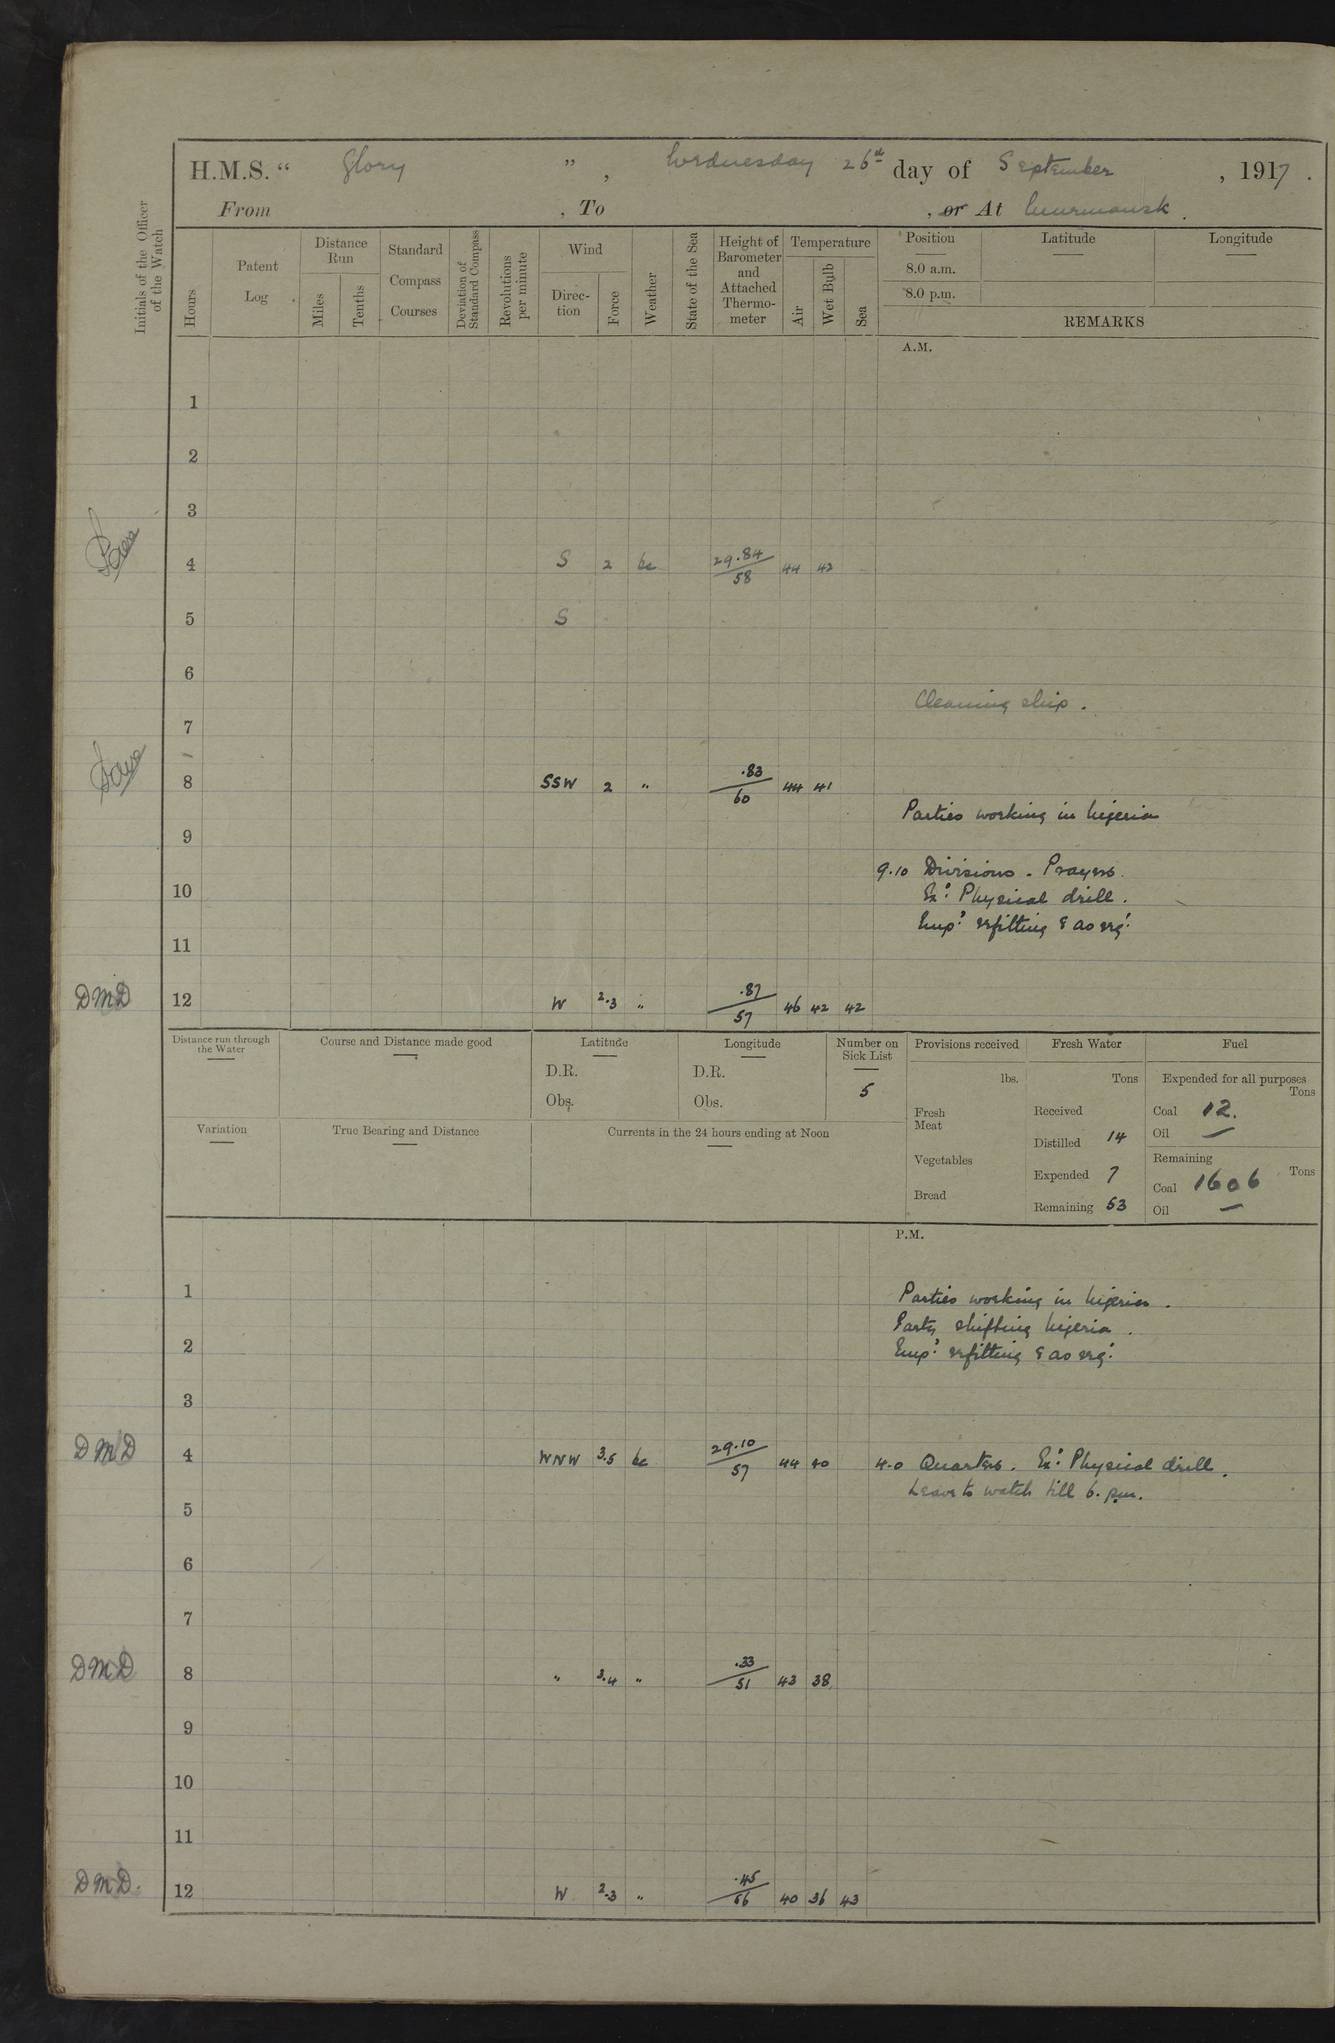 H.M.S. “ Glory ” , Wednesday 26th day of September , 1917 .
From , To , or At Murmansk .
Initials of the Officer of the Watch
Hours
Patent Log
Distance Run
Miles
Tenths
Standard Compass Courses
Deviation of Standard Compass
Revolutions per minute
Wind
Direc-tion
Force
Weather
State of the Sea
Height of Barometer and Attached Thermo-meter
Temperature
Air
Wet Bulb
Sea
Position Latitude Longitude
8.0 a.m.
8.0 p.m.
REMARKS
A.M.
1
2
3
4 S 2 bc 29.84/58 44 42
5 S
6
Cleaning ship .
7
8 SSW 2 " .83/60 44 41
Parties working in Nigeria
9
9.10 Divisions . Prayers .
10
Ex: Physical drill .
Emp: refitting & as req:
11
DMD 12 W 2.3 " .87/57 46 42 42
Distance run through the Water
Course and Distance made good
Latitude
D.R.
Obs.
Longitude
D.R.
Obs.
Number on Sick List
5
Provisions received
lbs.
Fresh Meat
Vegetables
Bread
Fresh Water
Tons
Received
Distilled 14
Expended 7
Remaining 53
Fuel
Expended for all purposes
Tons
Coal 12.
Oil —
Remaining
Tons
Coal 1606
Oil —
Variation
True Bearing and Distance
Currents in the 24 hours ending at Noon
P.M.
1 Parties working in Nigeria .
Party shifting Nigeria .
2 Emp: refitting & as req:
3
DMD 4 WNW 3.5 bc 29.10/57 44 40 4.0 Quarters . Ex: Physical drill .
Leave to watch till 6. pm.
5
6
7
DMD 8 " 3.4 " .33/51 43 38
9
10
11
DMD. 12 W 2.3 " .45/56 40 36 43